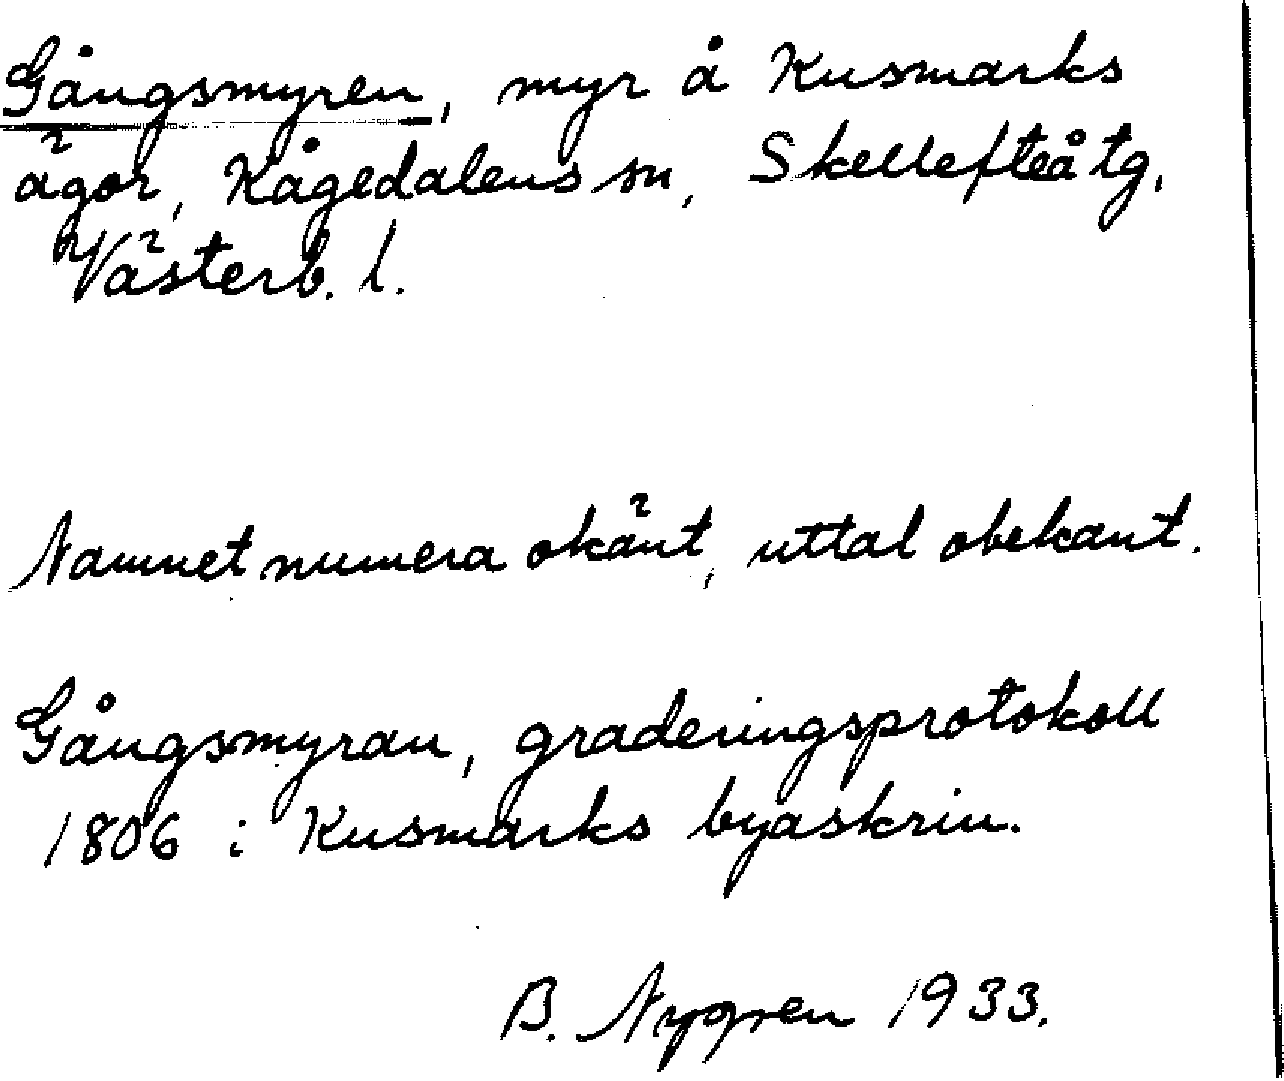 Gångsmyren, myr å Kusmarks
ägor, Kågedalens sn, Skellefteå tg,
Västerb. l.
Namnet numera okänt, uttal obekant.
Gångsmyran, graderingsprotokoll
1806 i Kusmarks byaskrin.
B. Nygren 1933.